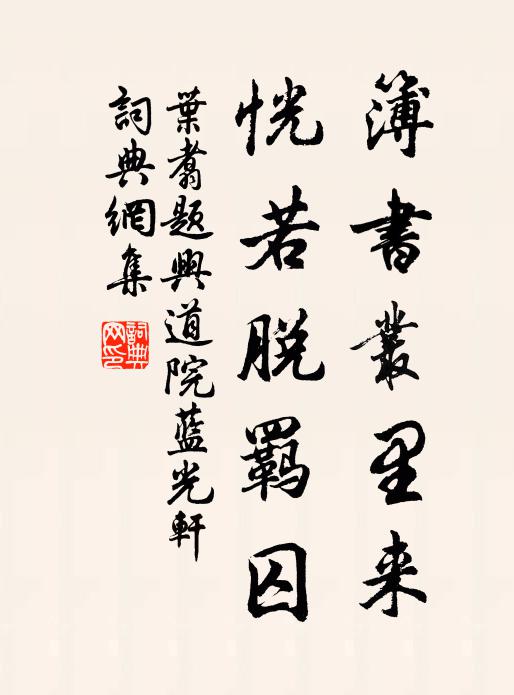 簿書叢里来
恍若脱羈囚
葉翥題興道院藍光軒
詞典網集
詞典网印